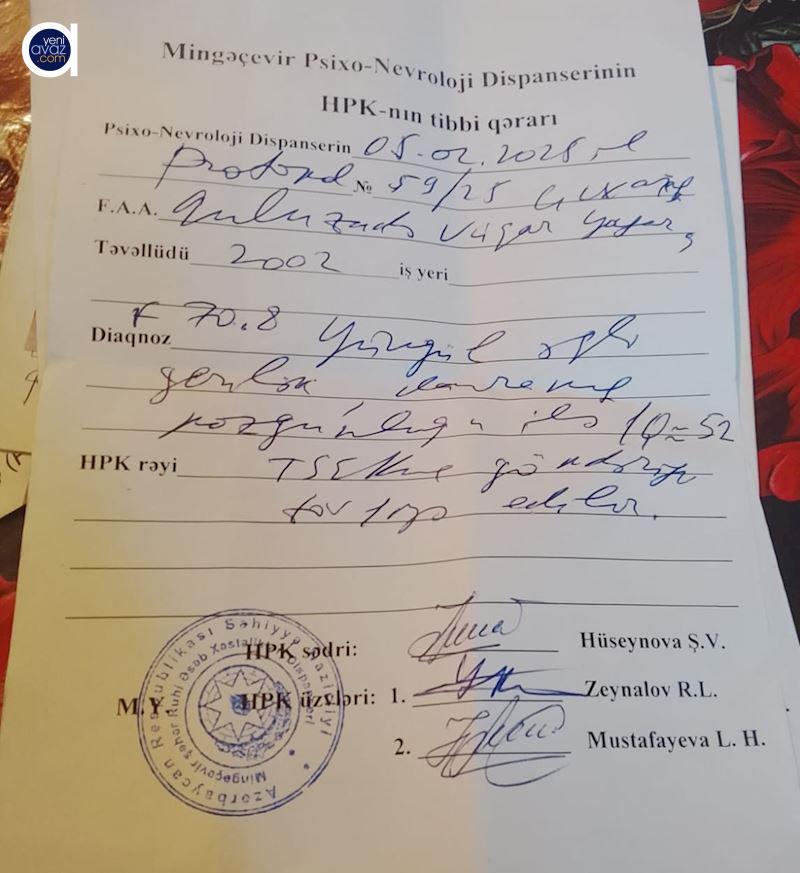 yeni
avaz
.com
Mingəçevir Psixo-Nevroloji Dispanserinin
HPK-nın tibbi qərarı
Psixo-Nevroloji Dispanserin 05.02.2025
Protokol № 59/25
F.A.A. Quluzadə Vüqar Yaşar
Təvəllüdü 2002 iş yeri
F 70.8 Yüngül əqli
Diaqnoz
gerilik, davranış
pozğunluğu ilə IQ≈52
HPK rəyi TSEK-nə göndəriş
tövsiyə edilir.
HPK sədri: Hüseynova Ş.V.
M.Y. HPK üzvləri: 1. Zeynalov R.L.
2. Mustafayeva L. H.
Azərbaycan Respublikası Səhiyyə Nazirliyi
Mingəçevir şəhər Ruhi Əsəb Xəstəlikləri Dispanseri